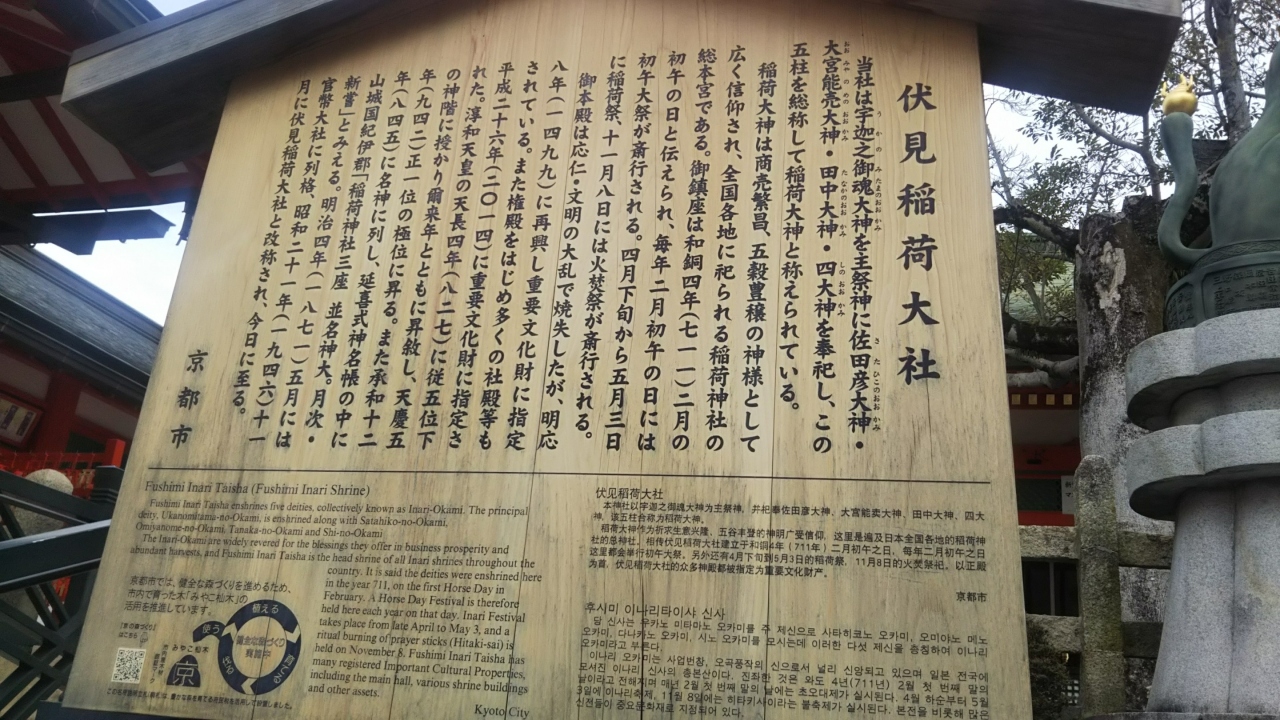 伏見稲荷大社
当社は宇迦之御魂大神を主祭神に佐田彦大神・
大宮能売大神・田中大神・四大神を奉祀し、この
五柱を総称して稲荷大神と称えられている。
稲荷大神は商売繁昌、五穀豊穣の神様として
広く信仰され、全国各地に祀られる稲荷神社の
総本宮である。御鎮座は和銅四年(七一一)二月の
初午の日と伝えられ、毎年二月初午の日には
初午大祭が斎行される。四月下旬から五月三日
に稲荷祭、十一月八日には火焚祭が斎行される。
御本殿は応仁・文明の大乱で焼失したが、明応
八年(一四九九)に再興し重要文化財に指定
されている。また権殿をはじめ多くの社殿等も
平成二十六年(二〇一四)に重要文化財に指定さ
れた。淳和天皇の天長四年(八二七)に従五位下
の神階に授かり爾来年とともに昇敍し、天慶五
年(九四二)正一位の極位に昇る。また承和十二
年(八四五)に名神に列し、延喜式神名帳の中に
山城国紀伊郡「稲荷神社三座 並名神大。月次・
新嘗」とみえる。明治四年(一八七一)五月には
官幣大社に列格、昭和二十一年(一九四六)十一
月に伏見稲荷大社と改称され、今日に至る。
京都市
Fushimi Inari Taisha (Fushimi Inari Shrine)
Fushimi Inari Taisha enshrines five deities, collectively known as Inari-Okami. The principal
deity, Ukanomitama-no-Okami, is enshrined along with Satahiko-no-Okami,
Omiyanome-no-Okami, Tanaka-no-Okami and Shi-no-Okami
The Inari-Okami are widely revered for the blessings they offer in business prosperity and
abundant harvests, and Fushimi Inari Taisha is the head shrine of all Inari shrines throughout the
country. It is said the deities were enshrined here
in the year 711, on the first Horse Day in
February. A Horse Day Festival is therefore
held here each year on that day. Inari Festival
takes place from late April to May 3, and a
ritual burning of prayer sticks (Hitaki-sai) is
held on November 8. Fushimi Inari Taisha has
many registered Important Cultural Properties,
including the main hall, various shrine buildings
and other assets.
Kyoto City
京都市では、健全な森づくりを進めるため、
市内で育った木「みやこ杣木」の
活用を推進しています。
植える
育てる
使う
伏见稻荷大社
本神社以宇迦之御魂大神为主祭神,并祀奉佐田彦大神、大宫能卖大神、田中大神、四大
神,该五柱合称为稻荷大神。
稻荷大神作为祈求生意兴隆、五谷丰登的神明广受信仰,这里是遍及日本全国各地的稻荷神
社的总神社。相传伏见稻荷大社建立于和铜4年(711年)二月初午之日,每年二月初午之日
这里都会举行初午大祭。另外还有4月下旬到5月3日的稻荷祭,11月8日的火焚祭祀。以正殿
为首,伏见稻荷大社的众多神殿都被指定为重要文化财产。
京都市
후시미 이나리타이샤 신사
당 신사는 우카노 미타마노 오카미를 주 제신으로 사타히코노 오카미, 오미야노 메노
오카미, 다나카노 오카미, 시노 오카미를 모시는데 이러한 다섯 제신을 총칭하여 이나리
오카미라고 부른다.
이나리 오카미는 사업번창, 오곡풍작의 신으로서 널리 신앙되고 있으며 일본 전국에
모셔진 이나리 신사의 총본산이다. 진좌한 것은 와도 4년(711년) 2월 첫 번째 말의
날이라고 전해지며 매년 2월 첫 번째 말의 날에는 초오대제가 실시된다. 4월 하순부터 5월
3일에 이나리축제, 11월 8일에는 히타키사이라는 불축제가 실시된다. 본전을 비롯해 많은
신전들이 중요문화재로 지정되어 있다.